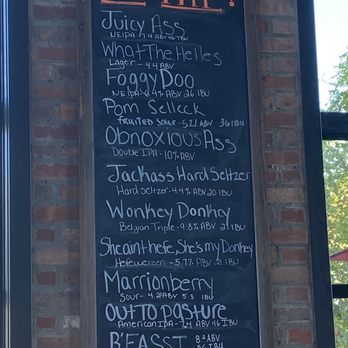 Juicy Ass
NEIPA 7.4 ABV 46 IBU
What The Helles
Lager - 4.4 ABV
Foggy Doo
NEIPA 6.4% ABV 26 IBU
Pom Selleck
fruited sour - 5.21 ABV 3.6 IBU
Obnoxious Ass
Double IPA - 10% ABV
Jackass Hard Seltzer
Hard Seltzer - 4.4% ABV 20 IBU
Wonkey Donkey
Belgian Triple - 9.8% ABV 21 IBU
She aint hefe, She's my Donkey
Hefeweizen - 5.7% ABV 21 IBU
Marrionberry
Sour - 4.21 ABV 5.3 IBU
Out to Pasture
American IPA - 7.4 ABV 46 IBU
B'FASST 8.2 ABV
IBU